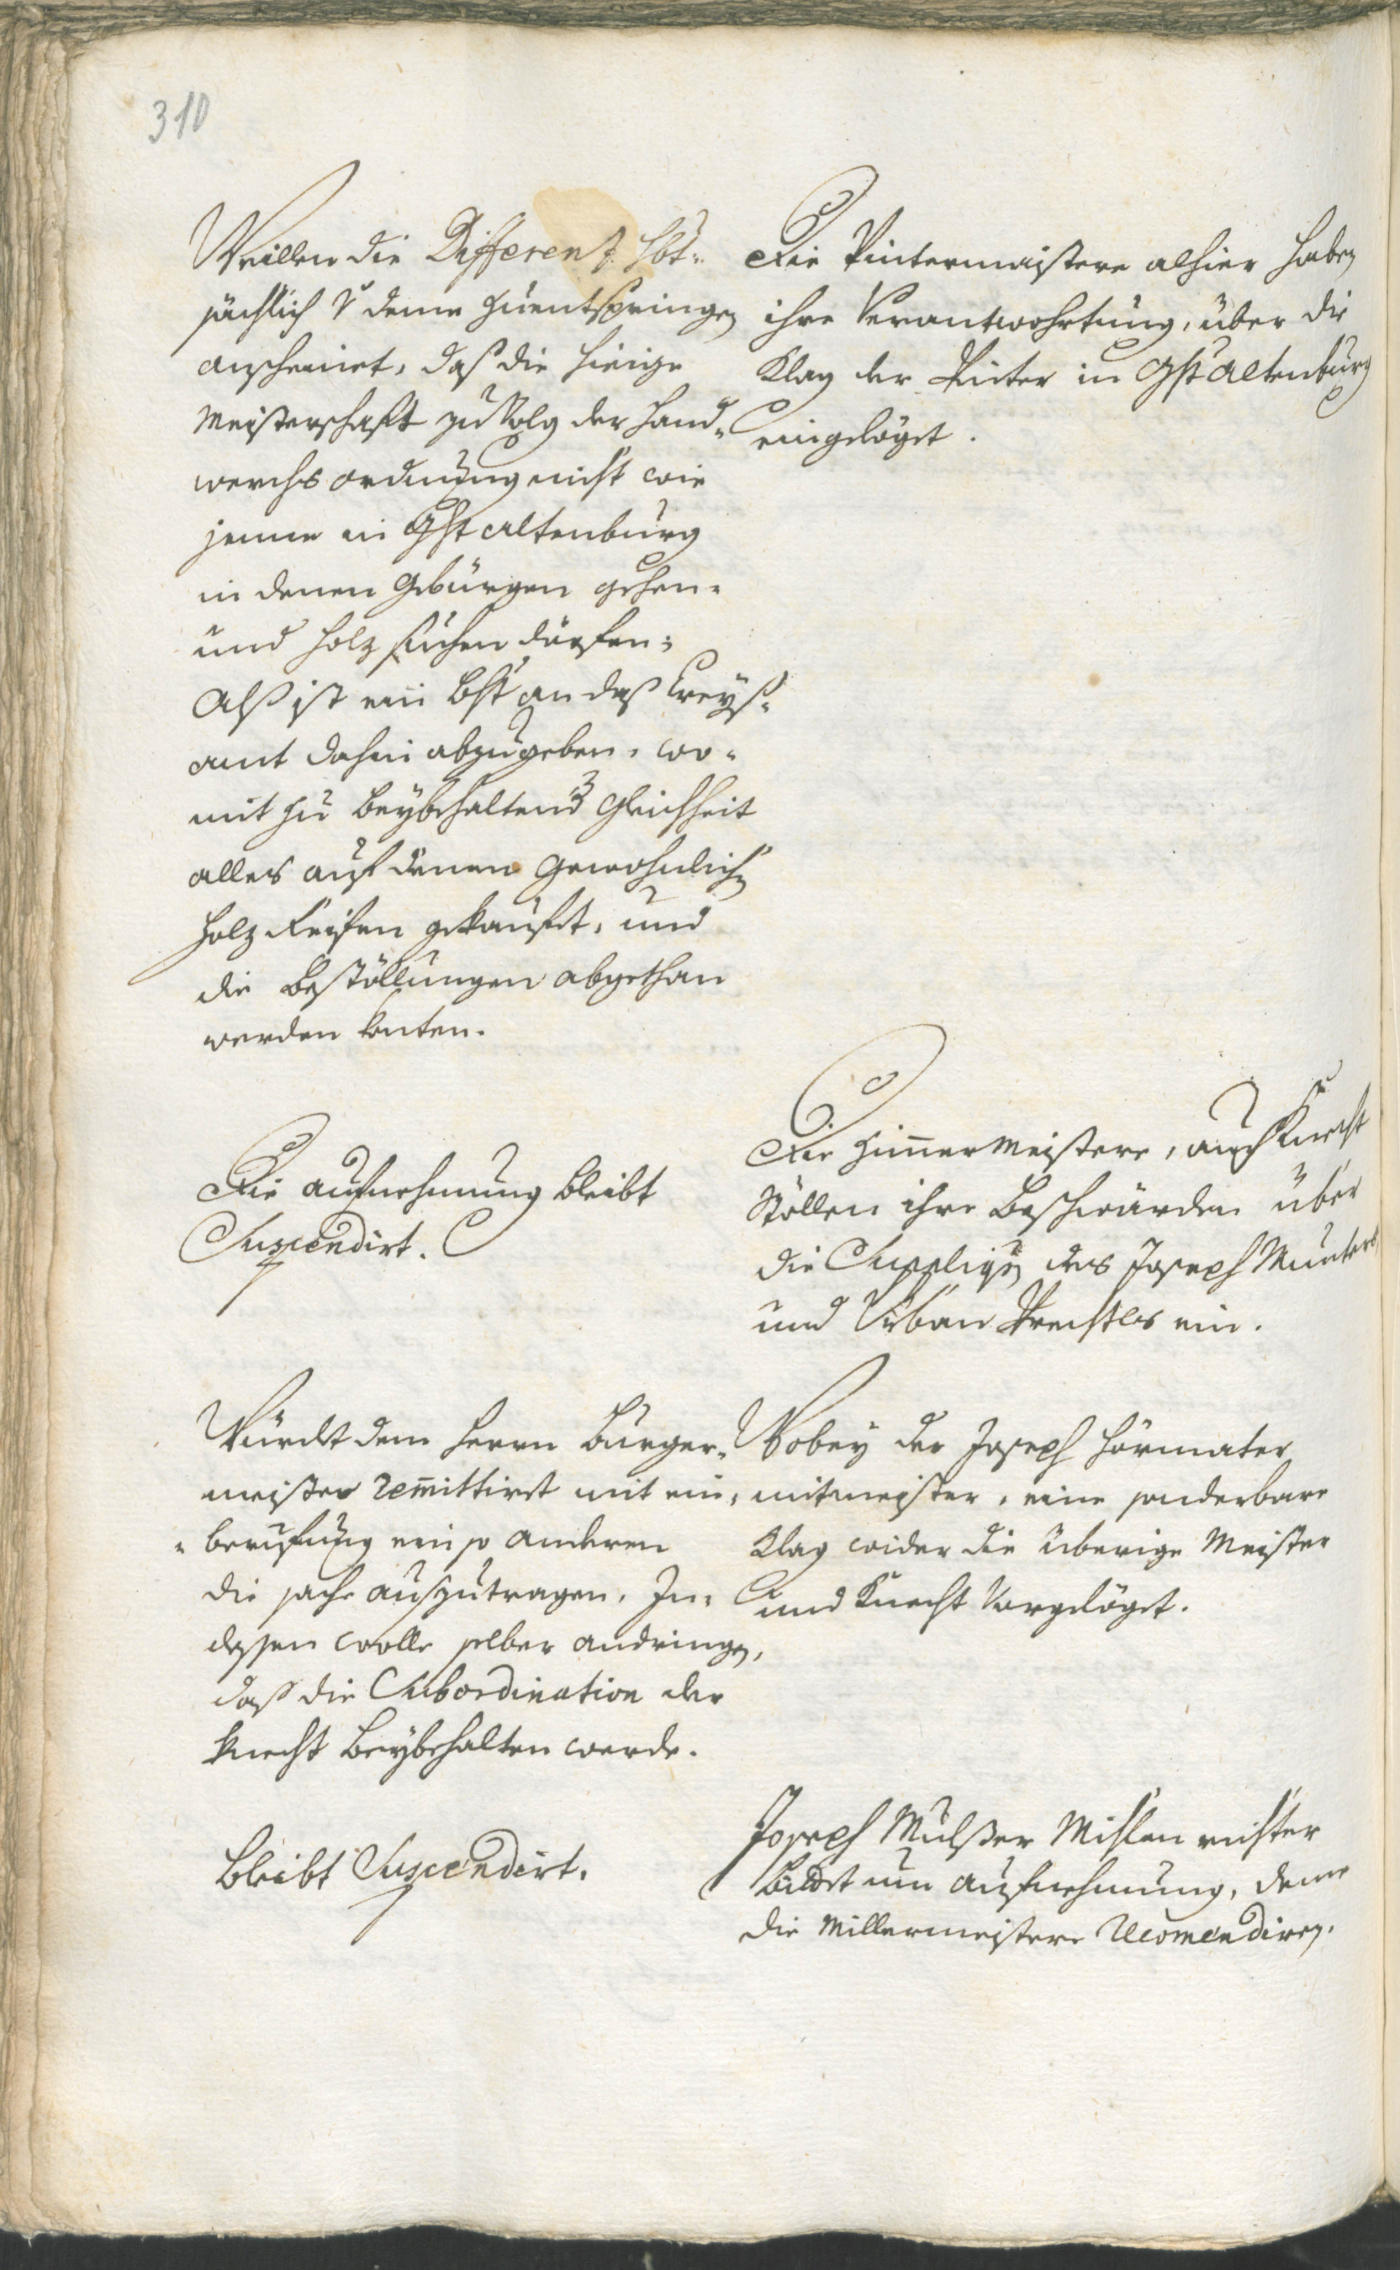 310
Weillen die Differenz hbt-
sächlich v deme zuentspringen
anscheinet, daß die hierige
Meisterschaft zu Folg der Hand-
werchs ordnung nicht wie
jenne in Gst Altenburg
in denen Gebürgen gehen-
und Holz suchen dörfen;
Alß ist ein bst an daß Creys-
amt dahin abzugeben, wo-
mit zu beybehaltend Gleichheit
alles auf denen gewohnlichen
Holz gekauft, und
die bestöllungen abgethan
werden könten.
Die Pintermaistere alhier haben
ihre Verantwohrtung, über die
Klag der Pinter in Gst Altenburg
eingelöget.
Die aufnehmung bleibt
Suspendirt.
Die Zimmermeistere, auch Knecht
Stöllen ihre beschwärden über
die Suppliquen des Joseph Munters,
und Urban Prechtls ein.
Würdt dem Herrn Burger-
meister remittirt mit ein-
beruffung ein so anderen
die sache auszutragen, In-
dessen wolle selber andringen,
daß die Subordination der
Knecht beybehalten werde.
Wobey der Joseph Hörmater
mitmeister, eine sonderbare
Klag wider die überige Meister
und Knecht Vorgelöget.
bleibt Suspendirt.
Joseph Mulßer Mihlen richter
bittet um aufnehmung, deme
die Millermeistere Recomendiren.